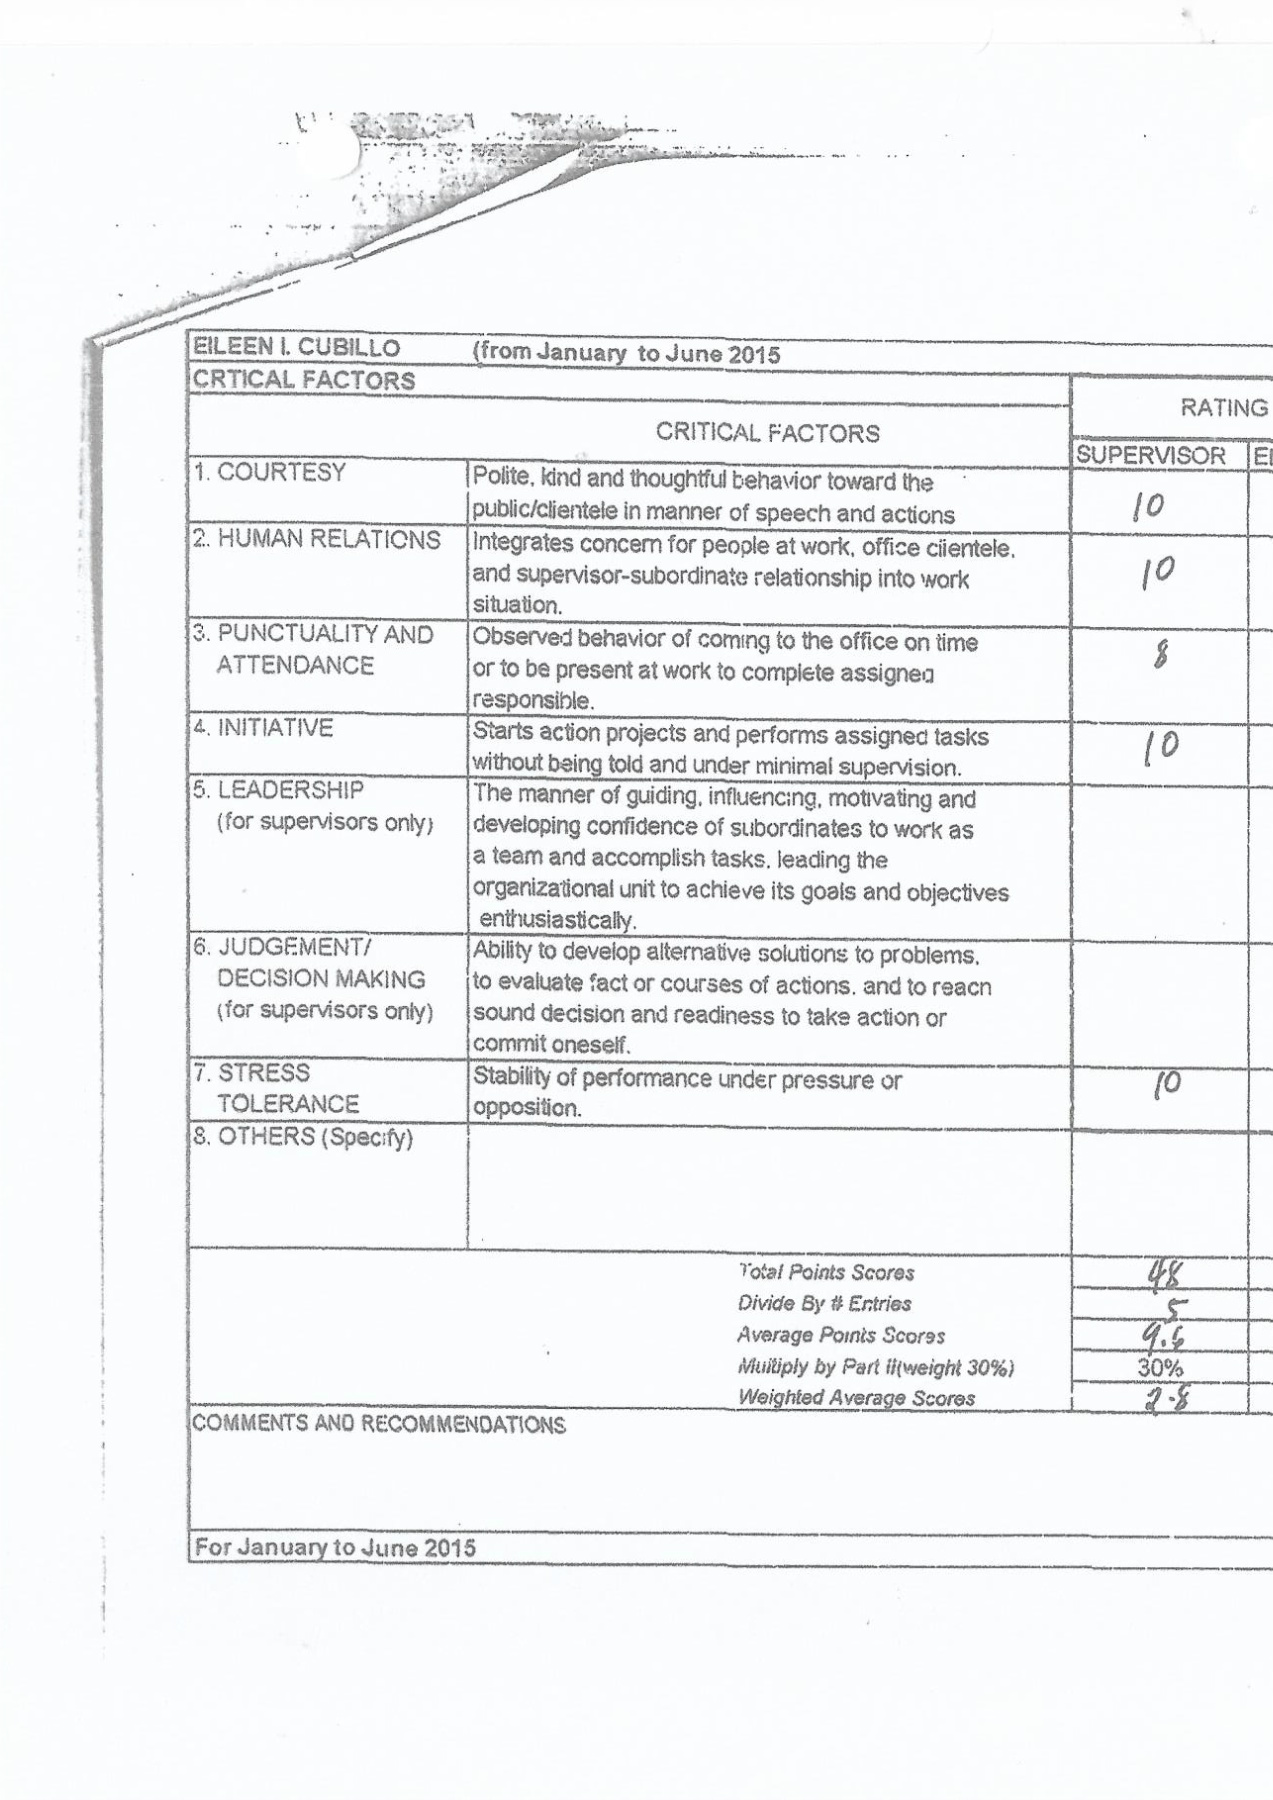 EILEEN I. CUBILLO (from January to June 2015
CRTICAL FACTORS
RATING
CRITICAL FACTORS
SUPERVISOR
1. COURTESY Polite, kind and thoughtful behavior toward the
public/clientele in manner of speech and actions 10
2. HUMAN RELATIONS Integrates concern for people at work, office clientele,
and supervisor-subordinate relationship into work 10
situation.
3. PUNCTUALITY AND Observed behavior of coming to the office on time
ATTENDANCE or to be present at work to complete assigned 8
responsible.
4. INITIATIVE Starts action projects and performs assigned tasks
without being told and under minimal supervision. 10
5. LEADERSHIP The manner of guiding, influencing, motivating and
(for supervisors only) developing confidence of subordinates to work as
a team and accomplish tasks, leading the
organizational unit to achieve its goals and objectives
enthusiastically.
6. JUDGEMENT/ Ability to develop alternative solutions to problems,
DECISION MAKING to evaluate fact or courses of actions, and to reach
(for supervisors only) sound decision and readiness to take action or
commit oneself.
7. STRESS Stability of performance under pressure or 10
TOLERANCE opposition.
8. OTHERS (Specify)
Total Points Scores 48
Divide By # Entries 5
Average Points Scores 9.6
Multiply by Part II(weight 30%) 30%
Weighted Average Scores 2.8
COMMENTS AND RECOMMENDATIONS
For January to June 2015